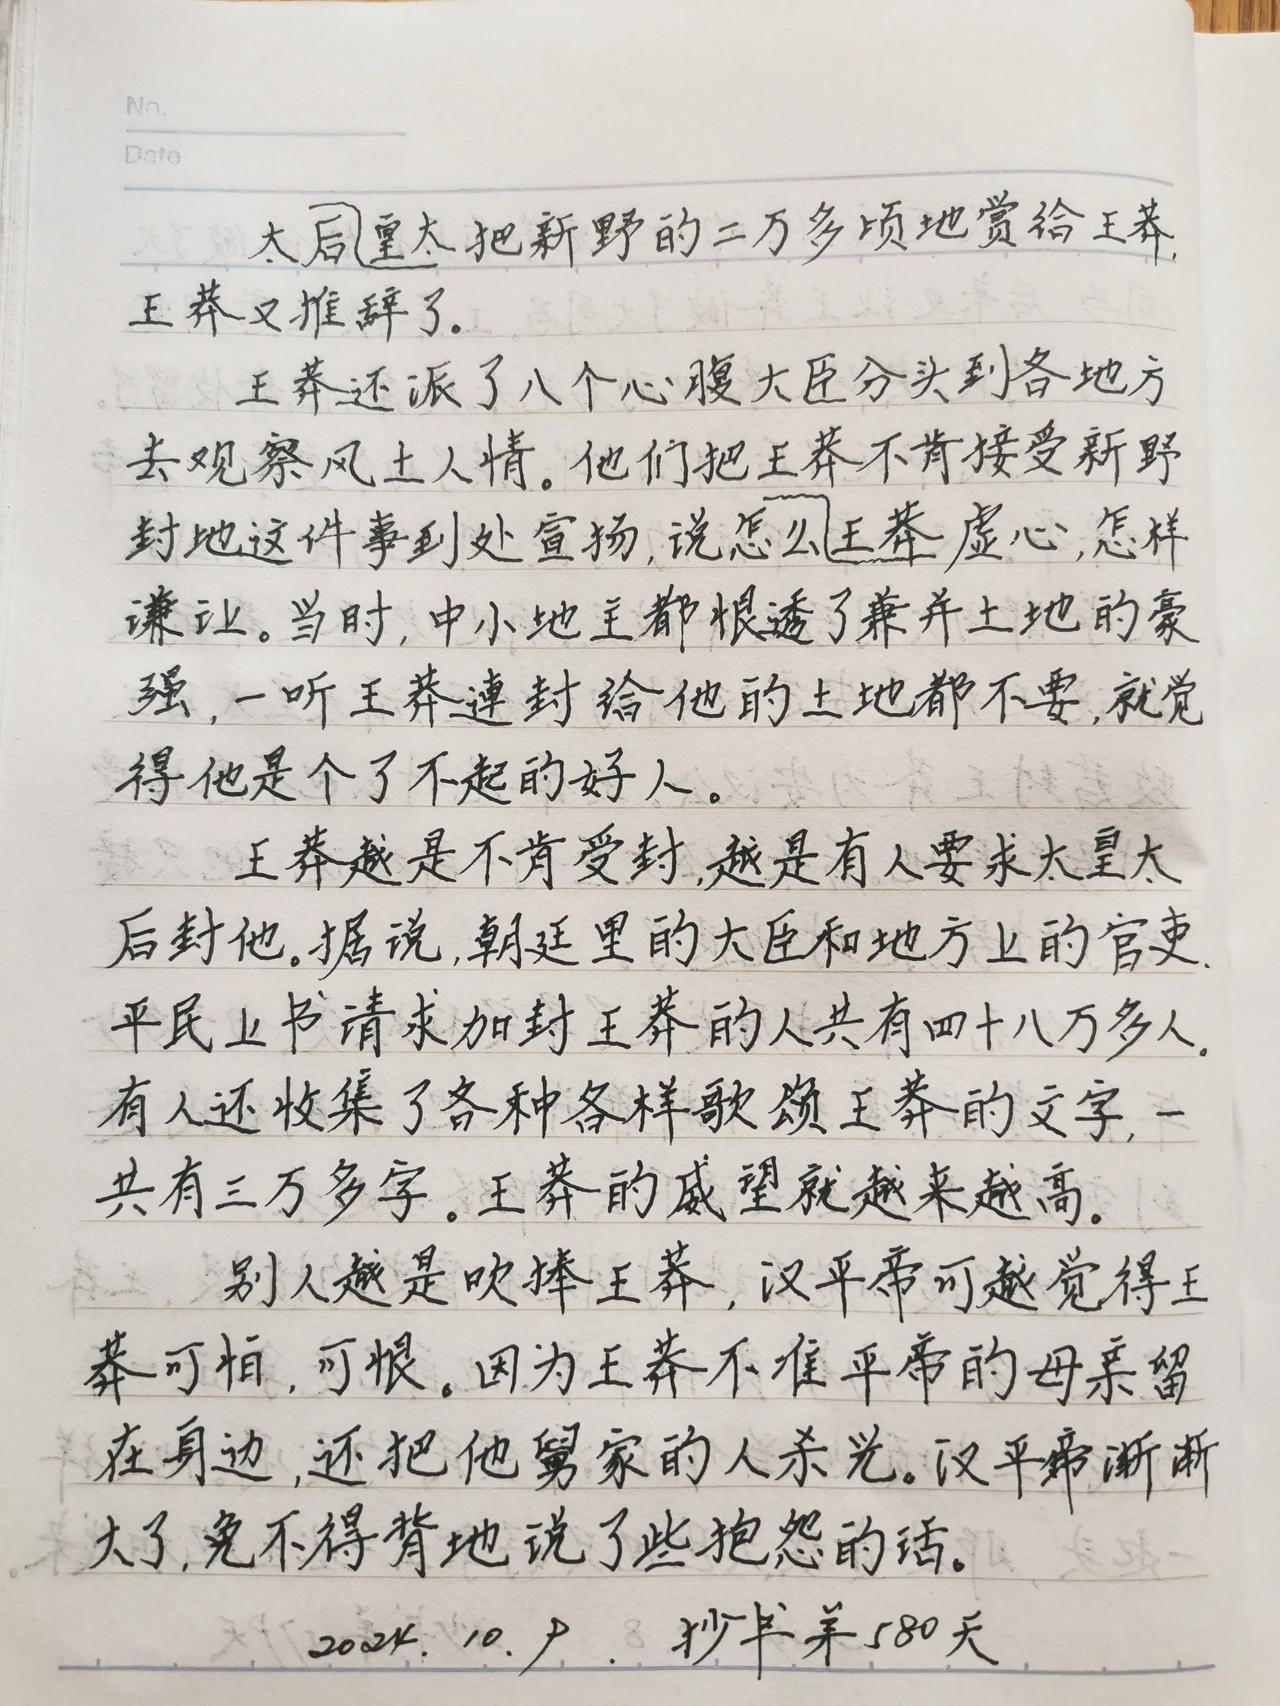 No.
Date
太后皇太把新野的二万多顷地赏给王莽，
王莽又推辞了。
王莽还派了八个心腹大臣分头到各地方
去观察风土人情。他们把王莽不肯接受新野
封地这件事到处宣扬，说怎么王莽虚心，怎样
谦让。当时，中小地主都恨透了兼并土地的豪
强，一听王莽連封给他的土地都不要，就觉
得他是个了不起的好人。
王莽越是不肯受封，越是有人要求太皇太
后封他。据说，朝廷里的大臣和地方上的官吏、
平民上书请求加封王莽的人共有四十八万多人。
有人还收集了各种各样歌颂王莽的文字，一
共有三万多字。王莽的威望就越来越高。
别人越是吹捧王莽，汉平帝可越觉得王
莽可怕，可恨。因为王莽不准平帝的母亲留
在身边，还把他舅家的人杀光。汉平帝渐渐
大了，免不得背地说了些抱怨的话。
2024.10.9. 抄书第580天